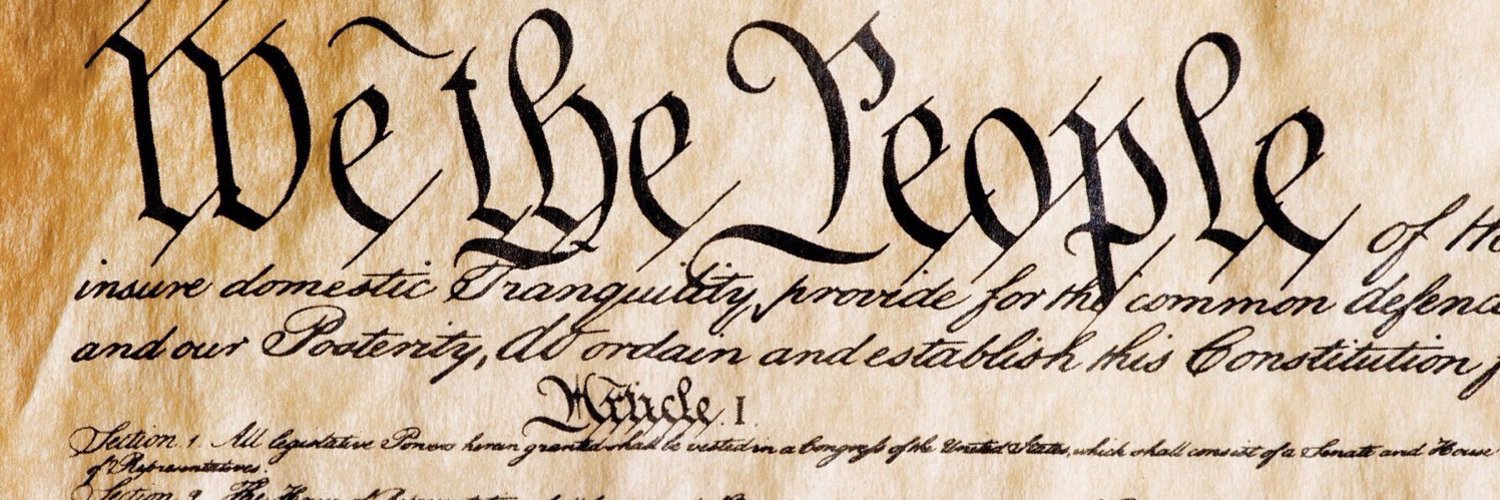 We the People of the
insure domestic Tranquility, provide for the common defence
and our Posterity, do ordain and establish this Constitution f
Article. I.
Section. 1. All legislative Powers herein granted shall be vested in a Congress of the United States, which shall consist of a Senate and House
of Representatives.
Section. 2. The House of Representatives